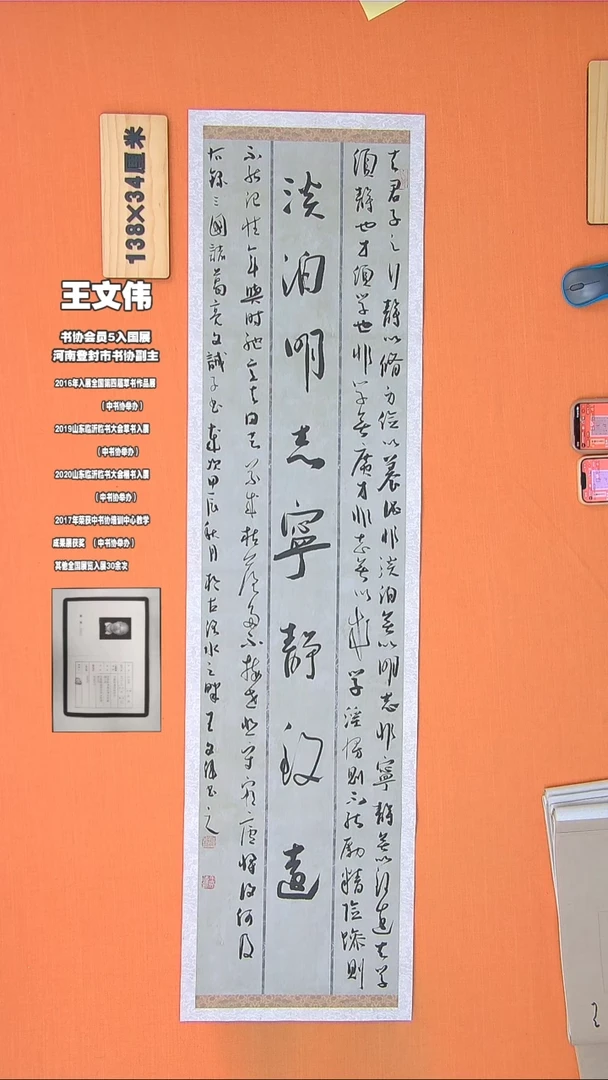 138×34厘米
王文伟
书协会员5入国展
河南登封市书协副主
2016年入展全国第四届草书作品展
（中书协举办）
2019山东临沂临书大会草书入展
（中书协举办）
2020山东临沂临书大会楷书入展
（中书协举办）
2017年荣获中书协培训中心教学
成果展获奖 （中书协举办）
其他全国展览入展30余次
夫君子之行静以修身俭以养德非淡泊無以明志非寧静無以致遠夫学
須静也才須学也非学無以廣才非志無以成学淫慢則不能励精險躁則
淡泊明志寧静致遠
不能冶性年與時馳意与日去遂成枯落多不接世悲守窮廬将復何及
右録三國諸葛亮文誡子书歲次甲辰秋月於古潁水之畔王文伟书之